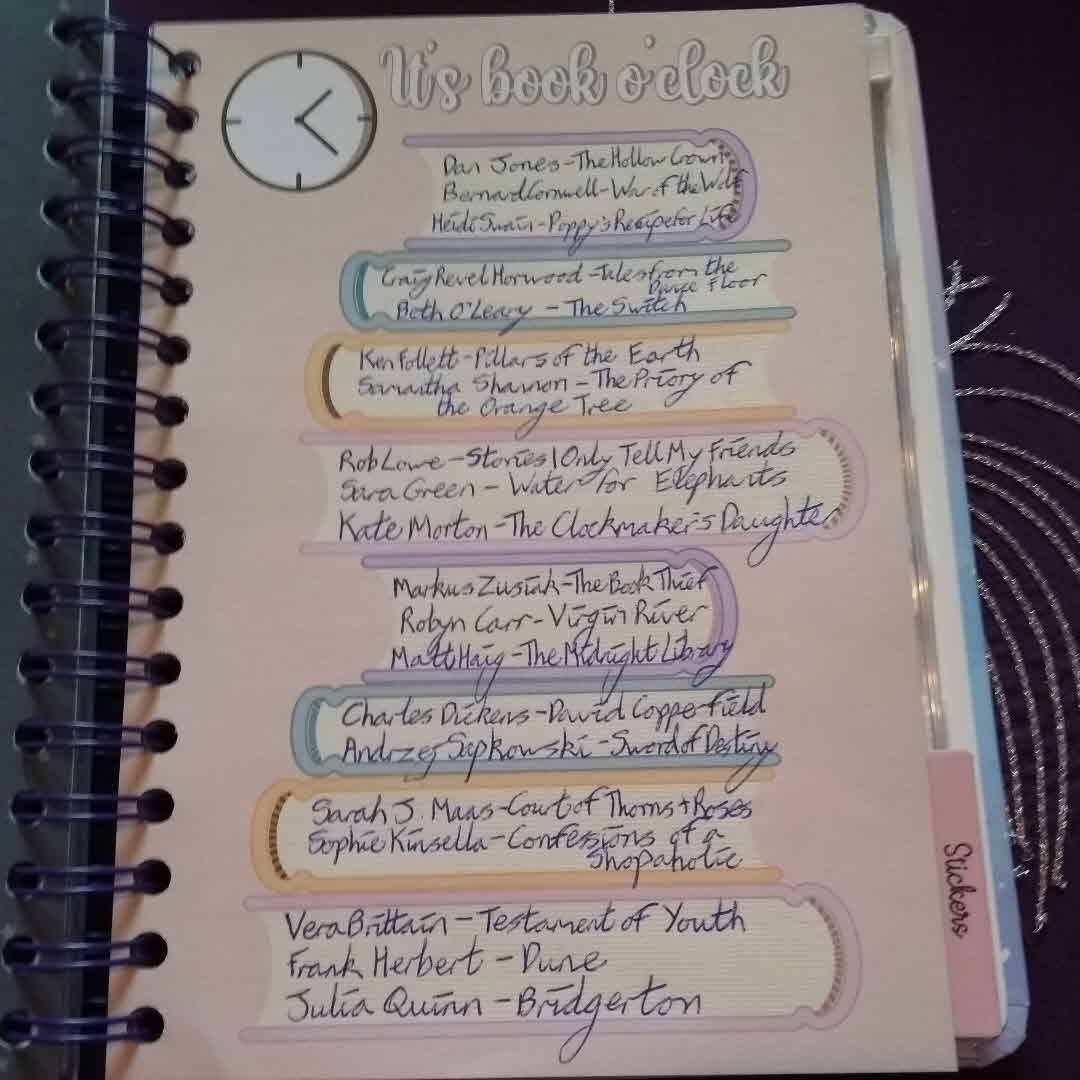 It's book o'clock
Dan Jones - The Hollow Crown
Bernard Cornwell - War of the Wolf
Heidi Swain - Poppy's Recipe for Life
Craig Revel Horwood - Tales from the
Dance Floor
Beth O'Leary - The Switch
Ken Follett - Pillars of the Earth
Samantha Shannon - The Priory of
the Orange Tree
Rob Lowe - Stories I Only Tell My Friends
Sara Green - Water for Elephants
Kate Morton - The Clockmaker's Daughter
Markus Zusiak - The Book Thief
Robyn Carr - Virgin River
Matt Haig - The Midnight Library
Charles Dickens - David Copperfield
Andrzej Sapkowski - Sword of Destiny
Sarah J. Maas - Court of Thorns + Roses
Sophie Kinsella - Confessions of a
Shopaholic
Vera Brittain - Testament of Youth
Frank Herbert - Dune
Julia Quinn - Bridgerton
Stickers